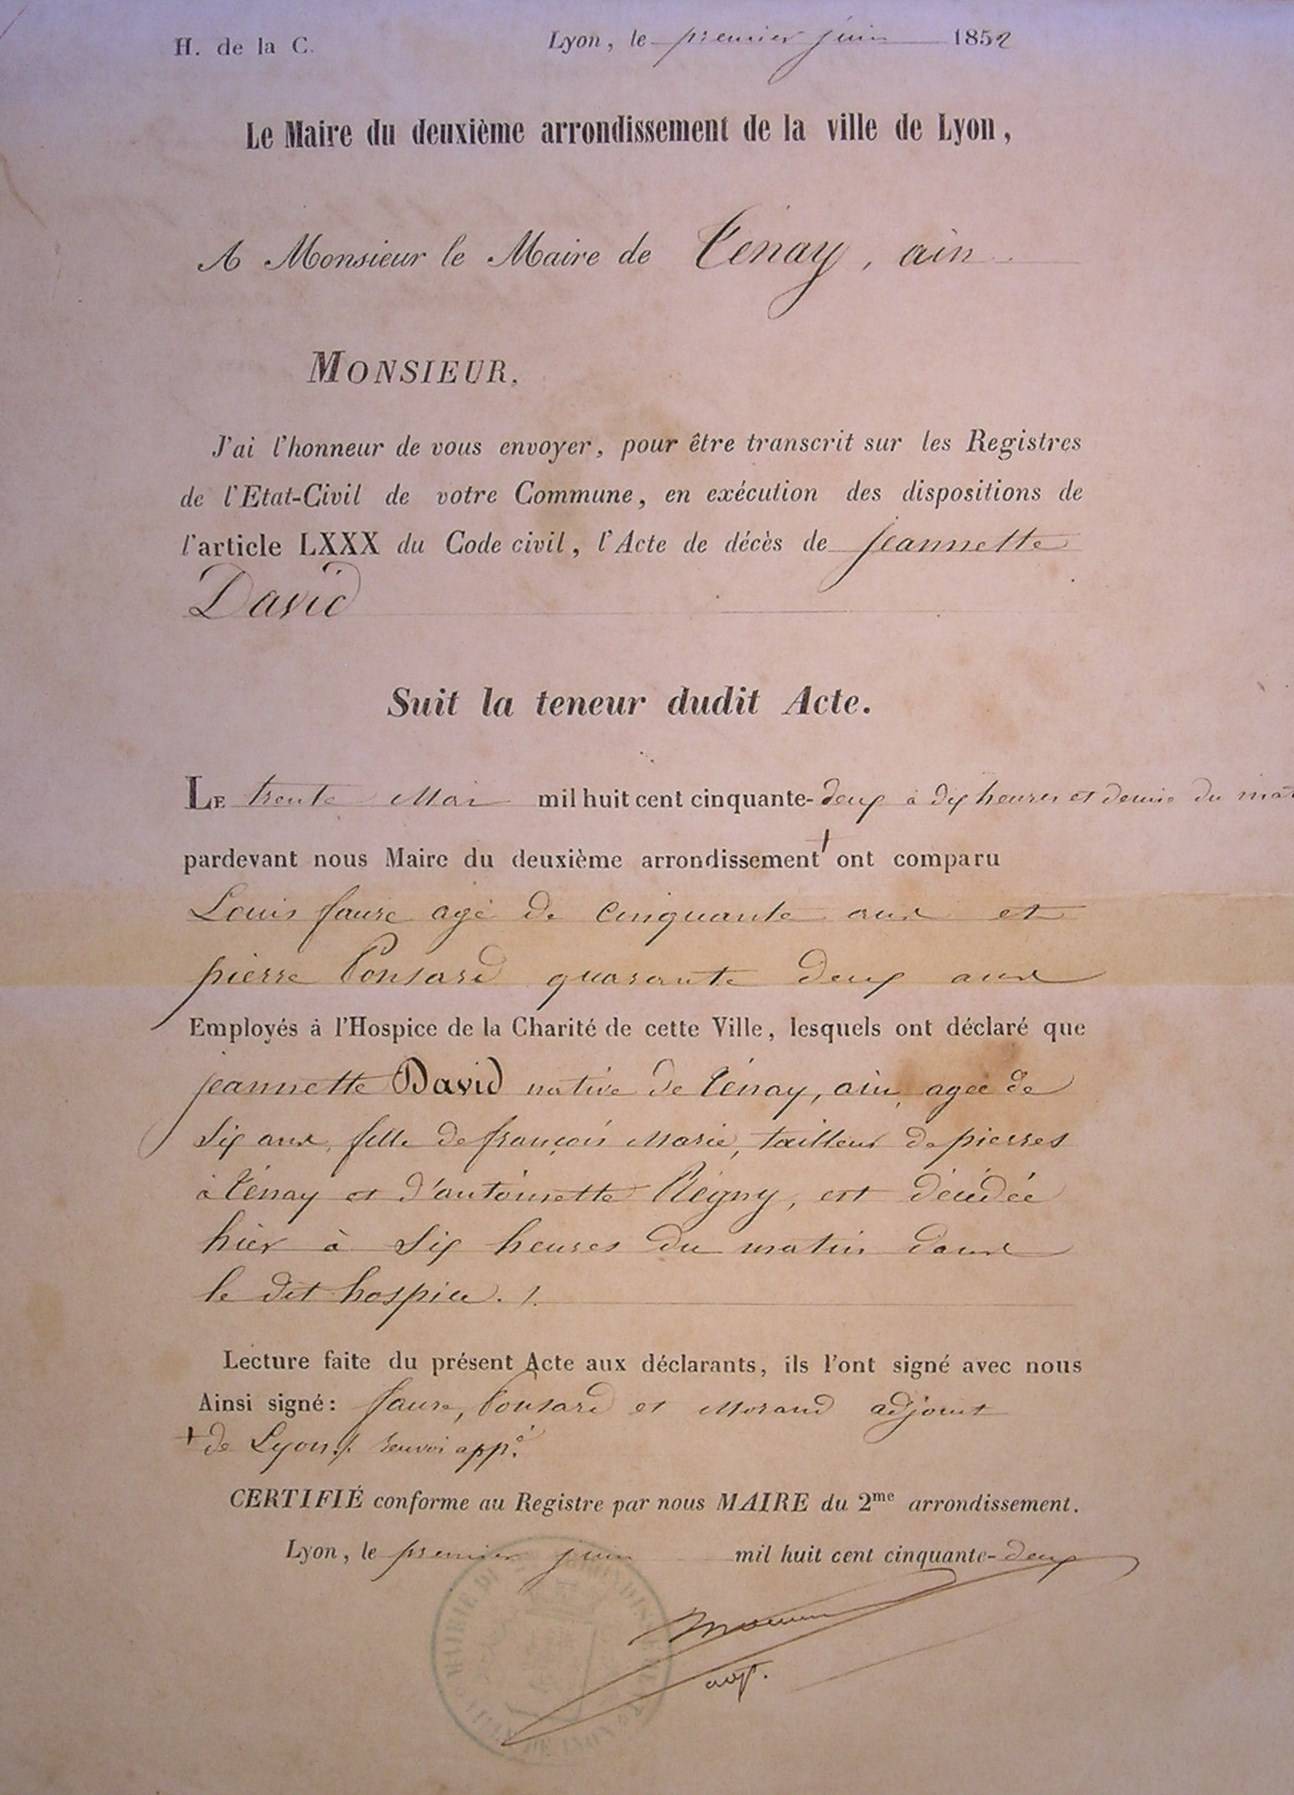 H. de la C.
Lyon, le premier juin 1852
Le Maire du deuxième arrondissement de la ville de Lyon,
A Monsieur le Maire de Tenay, ain
MONSIEUR,
J'ai l'honneur de vous envoyer, pour être transcrit sur les Registres
de l'Etat-Civil de votre Commune, en exécution des dispositions de
l'article LXXX du Code civil, l'Acte de décès de jeannette
David
Suit la teneur dudit Acte.
LE trente Mai mil huit cent cinquante-deux à dix heures et demie du mat
pardevant nous Maire du deuxième arrondissement + ont comparu
Louis faure agé de cinquante ans et
pierre Ponsard quarante deux ans
Employés à l'Hospice de la Charité de cette Ville, lesquels ont déclaré que
jeannette David native de Ténay, ain, agée de
six ans, fille de françois Marie, tailleur de pierres
à Ténay et d'antoinette Régny, est décédée
hier à six heures du matin dans
le dit hospice. /.
Lecture faite du présent Acte aux déclarants, ils l'ont signé avec nous
Ainsi signé: faure, Ponsard et Morand adjoint
+ de Lyon./. renvoi appé.
CERTIFIÉ conforme au Registre par nous MAIRE du 2me arrondissement.
Lyon, le premier juin mil huit cent cinquante-deux
adjt.